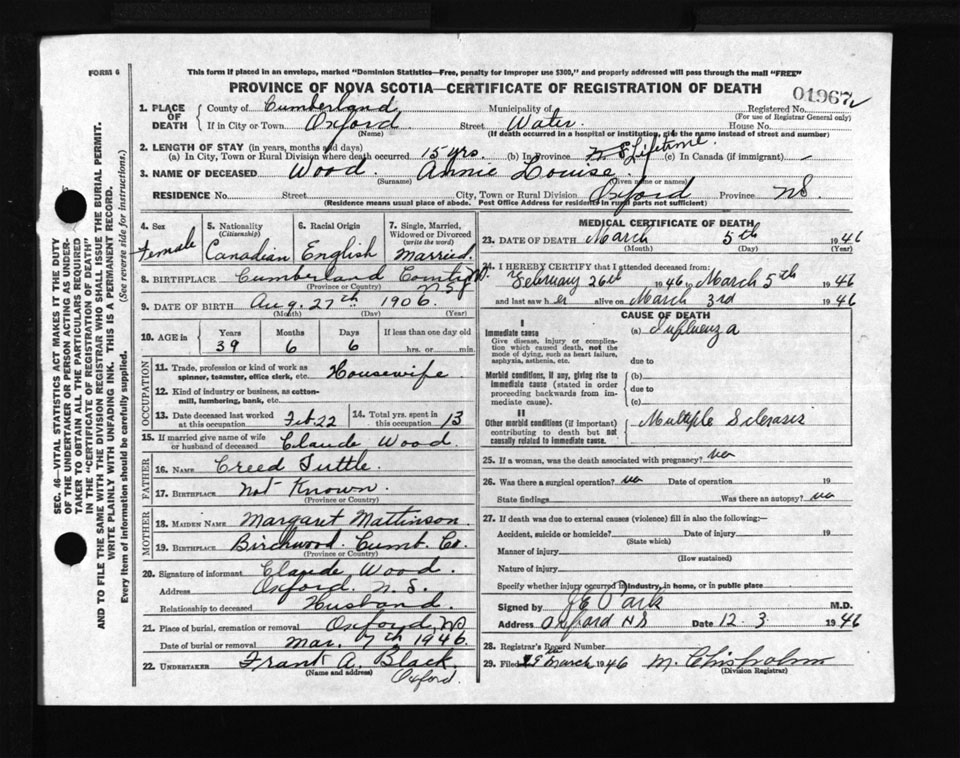 FORM 6
This form if placed in an envelope, marked "Dominion Statistics—Free, penalty for improper use $300," and properly addressed will pass through the mail "FREE"
PROVINCE OF NOVA SCOTIA—CERTIFICATE OF REGISTRATION OF DEATH
01967
1. PLACE OF DEATH County of Cumberland Municipality of Registered No.
(For use of Registrar General only)
If in City or Town Oxford Street Water House No.
(Name) (If death occurred in a hospital or institution, give the name instead of street and number)
2. LENGTH OF STAY (in years, months and days)
(a) In City, Town or Rural Division where death occurred 15 yrs. (b) In Province Lifetime (c) In Canada (if immigrant) —
3. NAME OF DECEASED Wood. Annie Louise
(Surname) (Given name or names)
RESIDENCE No. Street City, Town or Rural Division Oxford Province NS
(Residence means usual place of abode. Post Office Address for residents in rural parts not sufficient)
4. Sex Female
5. Nationality (Citizenship) Canadian
6. Racial Origin English
7. Single, Married, Widowed or Divorced (write the word) Married.
8. BIRTHPLACE Cumberland County N.S.
(Province or Country)
9. DATE OF BIRTH Aug. 27th 1906.
(Month) (Day) (Year)
10. AGE in Years 39 Months 6 Days 6 If less than one day old hrs. or min.
OCCUPATION
11. Trade, profession or kind of work as spinner, teamster, office clerk, etc. Housewife
12. Kind of industry or business, as cotton-mill, lumbering, bank, etc.
13. Date deceased last worked at this occupation Feb. 22
14. Total yrs. spent in this occupation 13
15. If married give name of wife or husband of deceased Claude Wood.
FATHER
16. NAME Creed Tuttle.
17. BIRTHPLACE Not Known.
(Province or Country)
MOTHER
18. MAIDEN NAME Margaret Mattinson
19. BIRTHPLACE Birchwood. Cumb. Co.
(Province or Country)
20. Signature of informant Claude Wood.
Address Oxford N.S.
Relationship to deceased Husband.
21. Place of burial, cremation or removal Oxford, NS
Date of burial or removal Mar. 7th 1946.
22. UNDERTAKER Frank A. Black.
(Name and address) Oxford.
MEDICAL CERTIFICATE OF DEATH
23. DATE OF DEATH March 5th 1946
(Month) (Day) (Year)
24. I HEREBY CERTIFY that I attended deceased from:
February 26th 1946 to March 5th 1946
and last saw her alive on March 3rd 1946
CAUSE OF DEATH
I
Immediate cause (a) Influenza
Give disease, injury or complication which caused death, not the mode of dying, such as heart failure, asphyxia, asthenia, etc.
due to
Morbid conditions, if any, giving rise to immediate cause (stated in order proceeding backwards from immediate cause).
(b)
due to
(c)
II
Other morbid conditions (if important) contributing to death but not causally related to immediate cause.
Multiple Sclerosis
25. If a woman, was the death associated with pregnancy? no
26. Was there a surgical operation? no Date of operation 19
State findings Was there an autopsy? no
27. If death was due to external causes (violence) fill in also the following:—
Accident, suicide or homicide? Date of injury 19
(State which)
Manner of injury
(How sustained)
Nature of injury
Specify whether injury occurred in industry, in home, or in public place
Signed by J E Park M.D.
Address Oxford NS Date 12.3. 1946
28. Registrar's Record Number
29. Filed March 1946 M. Chisholm
(Division Registrar)
SEC. 46—VITAL STATISTICS ACT MAKES IT THE DUTY
OF THE UNDERTAKER OR PERSON ACTING AS UNDER-
TAKER TO OBTAIN ALL THE PARTICULARS REQUIRED
IN THE "CERTIFICATE OF REGISTRATION OF DEATH"
AND TO FILE THE SAME WITH THE DIVISION REGISTRAR WHO SHALL ISSUE THE BURIAL PERMIT.
WRITE PLAINLY WITH UNFADING INK. THIS IS A PERMANENT RECORD.
Every item of information should be carefully supplied. (See reverse side for instructions.)